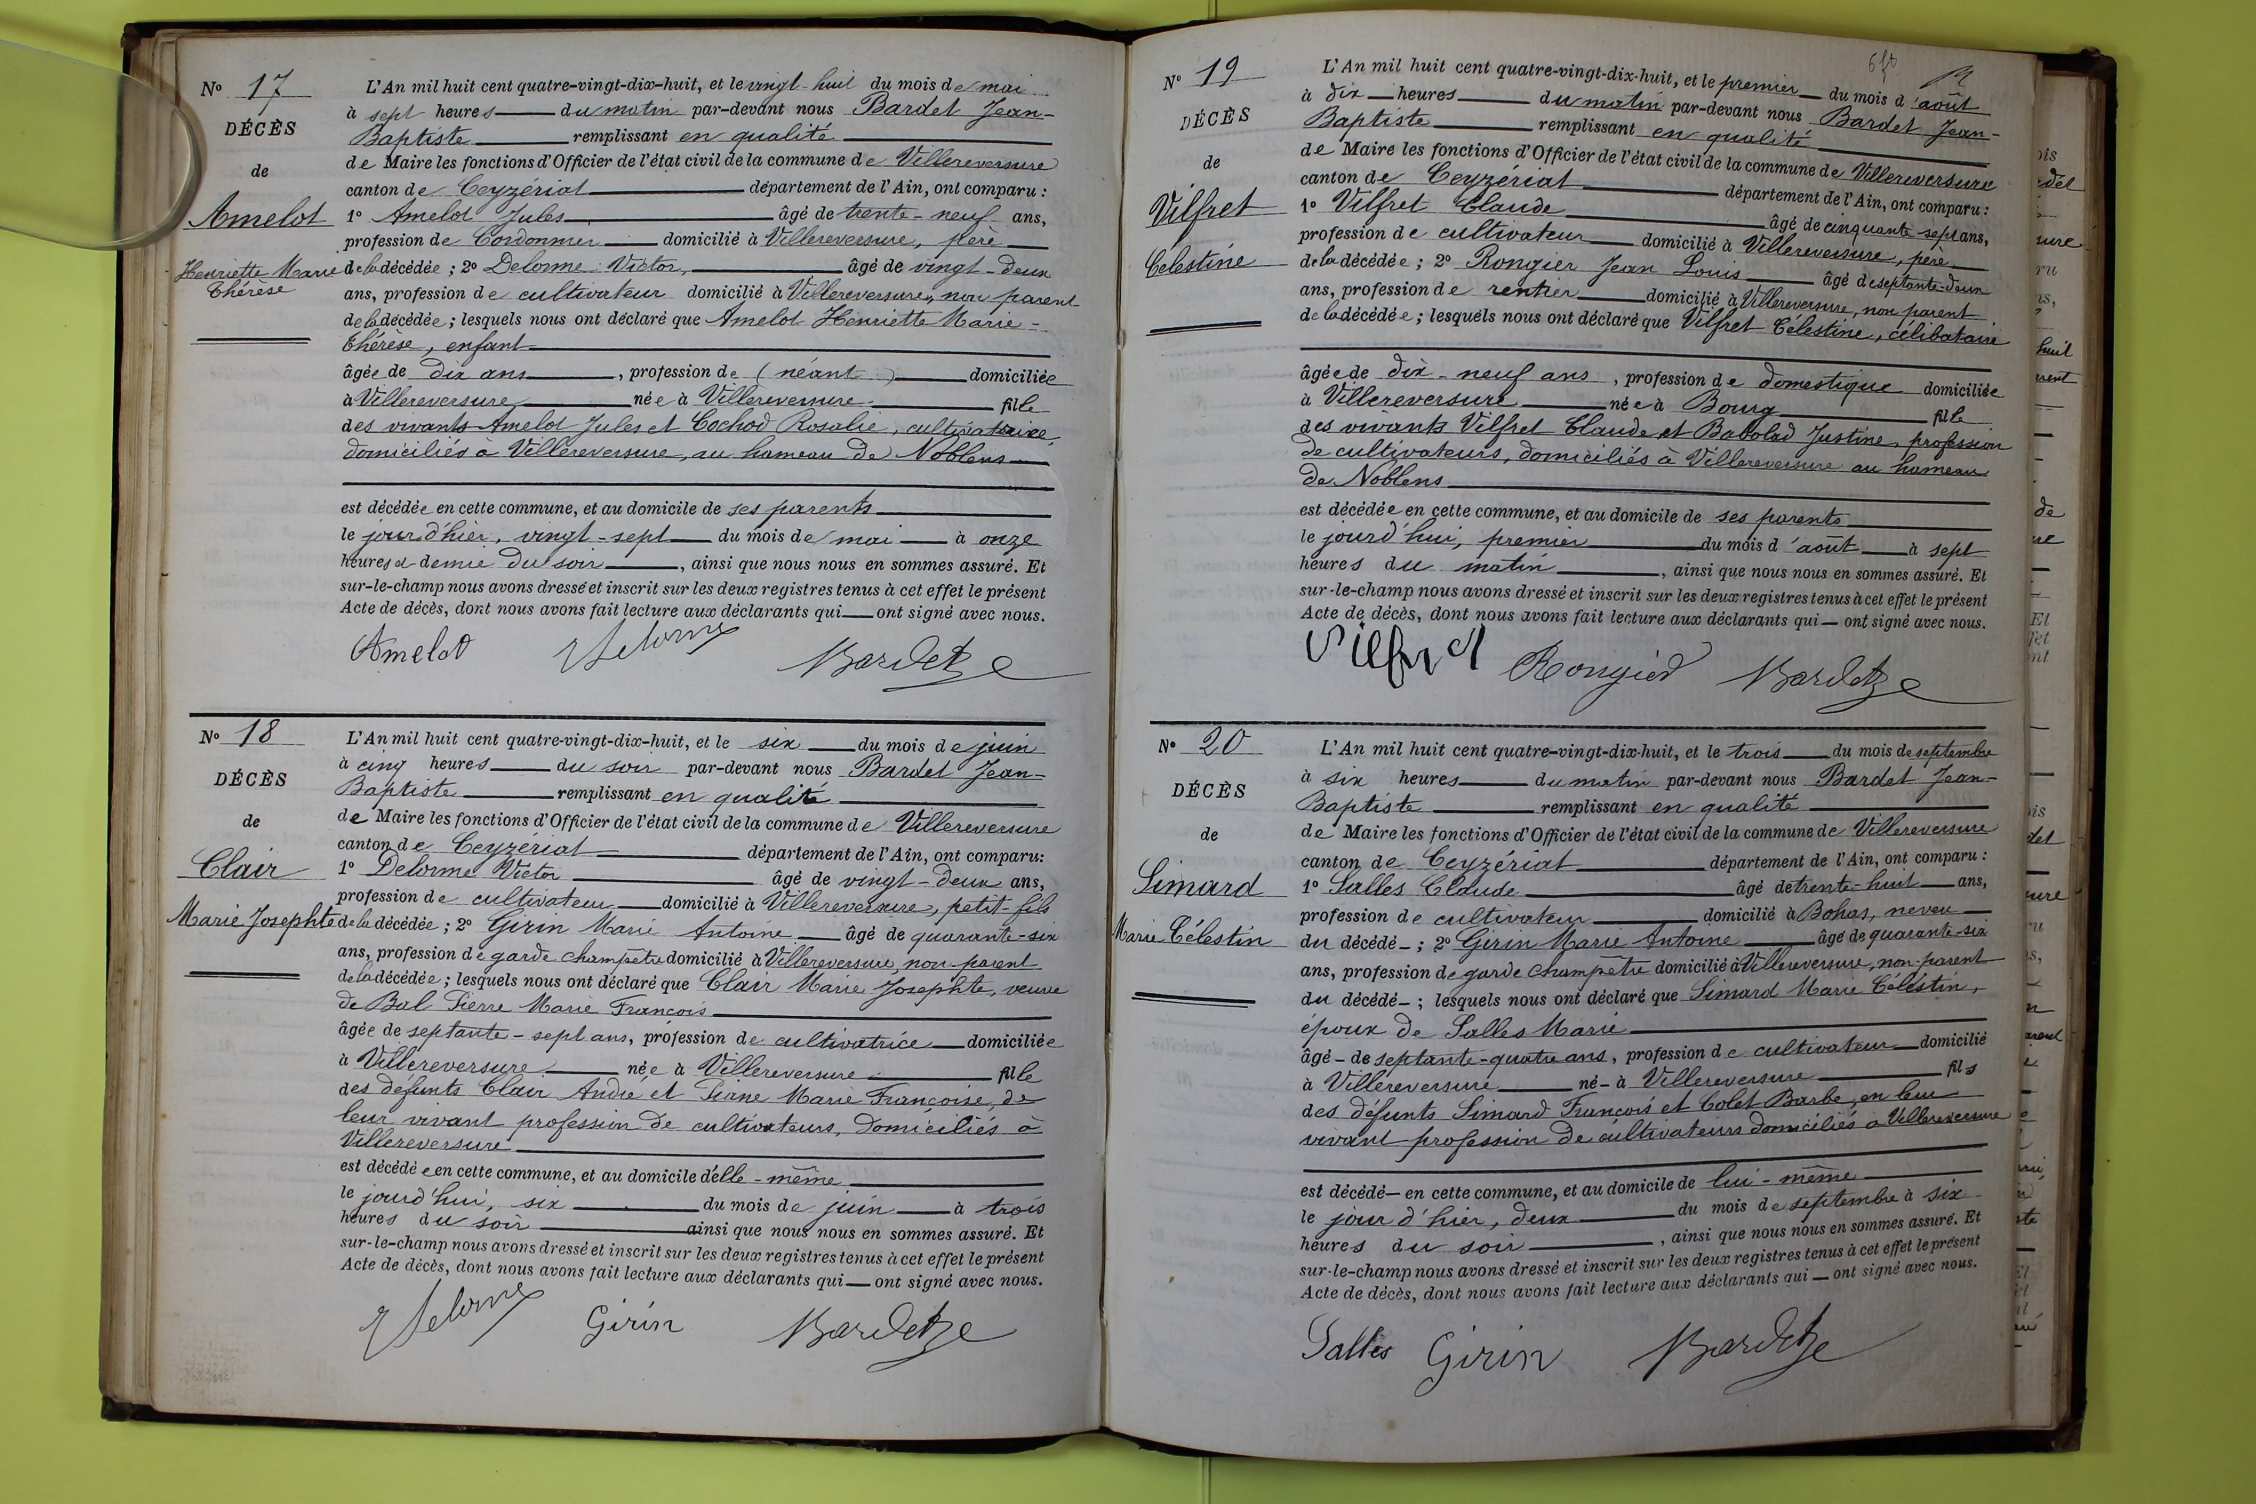 N° 17
DÉCÈS
de
Amelot
Henriette Marie
Thérèse
L'An mil huit cent quatre-vingt-dix-huit, et le vingt-huit du mois de mai
à sept heures du matin par-devant nous Bardet Jean-
Baptiste remplissant en qualité
de Maire les fonctions d'Officier de l'état civil de la commune de Villereversure
canton de Ceyzériat département de l'Ain, ont comparu :
1° Amelot Jules âgé de trente-neuf ans,
profession de Cordonnier domicilié à Villereversure, père
de la décédée ; 2° Delorme Victor, âgé de vingt-deux
ans, profession de cultivateur domicilié à Villereversure, non parent
de la décédée ; lesquels nous ont déclaré que Amelot Henriette Marie-
Thérèse, enfant
âgée de dix ans, profession de (néant) domiciliée
à Villereversure née à Villereversure fille
des vivants Amelot Jules et Cochod Rosalie,
domiciliés à Villereversure, au hameau de Noblens
est décédée en cette commune, et au domicile de ses parents
le jour d'hier, vingt-sept du mois de mai à onze
heures et demie du soir, ainsi que nous nous en sommes assuré. Et
sur-le-champ nous avons dressé et inscrit sur les deux registres tenus à cet effet le présent
Acte de décès, dont nous avons fait lecture aux déclarants qui ont signé avec nous.
Amelot VDelorme Bardet
N° 18
DÉCÈS
de
Clair
Marie Josephte
L'An mil huit cent quatre-vingt-dix-huit, et le six du mois de juin
à cinq heures du soir par-devant nous Bardet Jean-
Baptiste remplissant en qualité
de Maire les fonctions d'Officier de l'état civil de la commune de Villereversure
canton de Ceyzériat département de l'Ain, ont comparu :
1° Delorme Victor âgé de vingt-deux ans,
profession de cultivateur domicilié à Villereversure, petit-fils
de la décédée ; 2° Girin Marie Antoine âgé de quarante-six
ans, profession de garde champêtre domicilié à Villereversure, non-parent
de la décédée ; lesquels nous ont déclaré que Clair Marie Josephte, veuve
de Bal Pierre Marie François
âgée de septante-sept ans, profession de cultivatrice domiciliée
à Villereversure née à Villereversure fille
des défunts Clair André et Pirne Marie Françoise, de
leur vivant profession de cultivateurs, domiciliés à
Villereversure
est décédée en cette commune, et au domicile d'elle-même
le jourd'hui, six du mois de juin à trois
heures du soir ainsi que nous nous en sommes assuré. Et
sur-le-champ nous avons dressé et inscrit sur les deux registres tenus à cet effet le présent
Acte de décès, dont nous avons fait lecture aux déclarants qui ont signé avec nous.
VDelorme Girin Bardet
N° 19
DÉCÈS
de
Vilfret
Célestine
L'An mil huit cent quatre-vingt-dix-huit, et le premier du mois d'août
à dix heures du matin par-devant nous Bardet Jean-
Baptiste remplissant en qualité
de Maire les fonctions d'Officier de l'état civil de la commune de Villereversure
canton de Ceyzériat département de l'Ain, ont comparu :
1° Vilfret Claude âgé de cinquante-sept ans,
profession de cultivateur domicilié à Villereversure, père
de la décédée ; 2° Rongier Jean Louis âgé de septante-deux
ans, profession de rentier domicilié à Villereversure, non parent
de la décédée ; lesquels nous ont déclaré que Vilfret Célestine, célibataire
âgée de dix-neuf ans, profession de domestique domiciliée
à Villereversure née à Bourg fille
des vivants Vilfret Claude et Babolad Justine, profession
de cultivateurs, domiciliés à Villereversure au hameau
de Noblens
est décédée en cette commune, et au domicile de ses parents
le jourd'hui, premier du mois d'août à sept
heures du matin, ainsi que nous nous en sommes assuré. Et
sur-le-champ nous avons dressé et inscrit sur les deux registres tenus à cet effet le présent
Acte de décès, dont nous avons fait lecture aux déclarants qui ont signé avec nous.
Vilfret Rongier Bardet
N° 20
DÉCÈS
de
Simard
Marie Célestin
L'An mil huit cent quatre-vingt-dix-huit, et le trois du mois de septembre
à six heures du matin par-devant nous Bardet Jean-
Baptiste remplissant en qualité
de Maire les fonctions d'Officier de l'état civil de la commune de Villereversure
canton de Ceyzériat département de l'Ain, ont comparu :
1° Salles Claude âgé de trente-huit ans,
profession de cultivateur domicilié à Bohas, neveu
du décédé ; 2° Girin Marie Antoine âgé de quarante-six
ans, profession de garde champêtre domicilié à Villereversure, non-parent
du décédé ; lesquels nous ont déclaré que Simard Marie Célestin,
époux de Salles Marie
âgé de septante-quatre ans, profession de cultivateur domicilié
à Villereversure né à Villereversure fils
des défunts Simard François et Colet Barbe, en leur
vivant profession de cultivateurs domiciliés à Villereversure
est décédé en cette commune, et au domicile de lui-même
le jour d'hier, deux du mois de septembre à six
heures du soir, ainsi que nous nous en sommes assuré. Et
sur-le-champ nous avons dressé et inscrit sur les deux registres tenus à cet effet le présent
Acte de décès, dont nous avons fait lecture aux déclarants qui ont signé avec nous.
Salles Girin Bardet